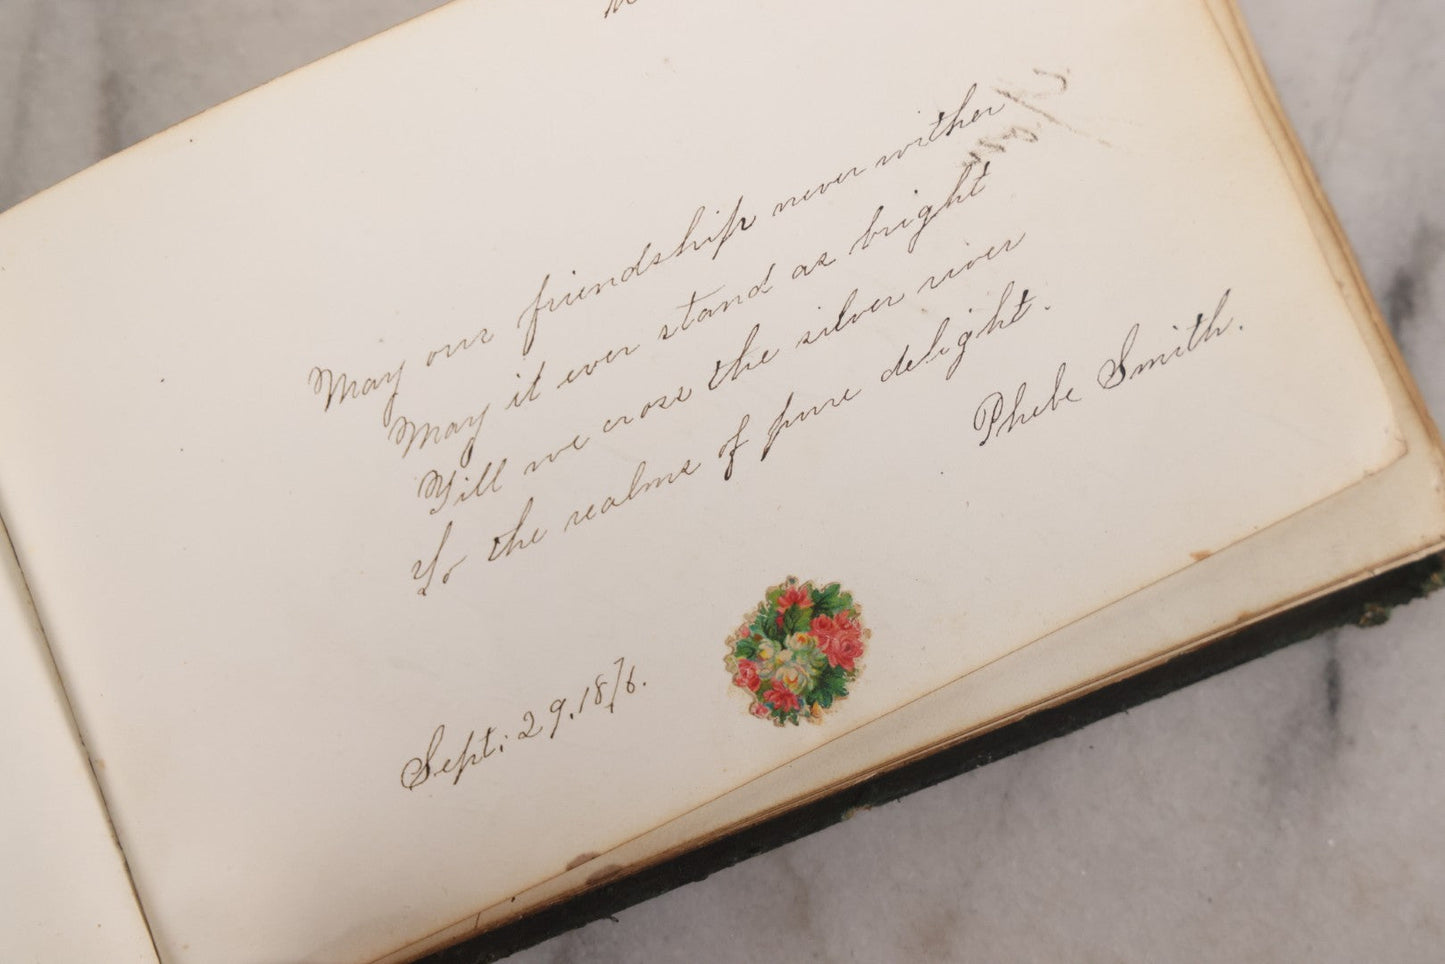 May our friendship never wither
May it ever stand as bright
Till we cross the silver river
To the realms of pure delight.
Phebe Smith.
Sept; 29, 1876.